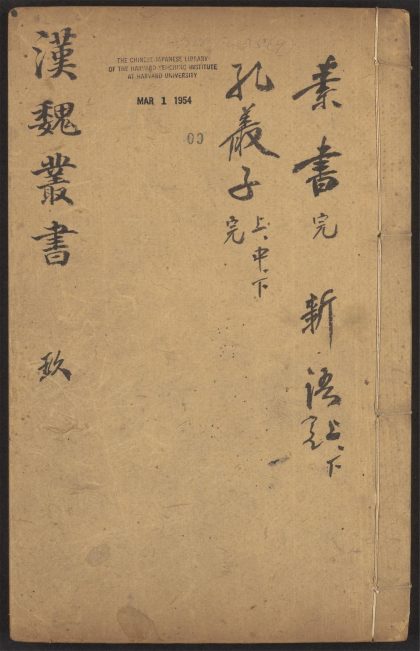 素書 完 新語 上、下 完
孔叢子 上、中、下 完
THE CHINESE-JAPANESE LIBRARY
OF THE HARVARD-YENCHING INSTITUTE
AT HARVARD UNIVERSITY
MAR 1 1954
漢魏叢書 玖